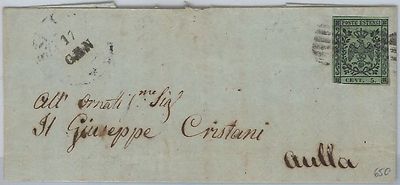 17
GEN
POSTE ESTENSI
CENT. 5.
All' Ornati(.mo Sig
Il Giuseppe Cristani
Aulla
650